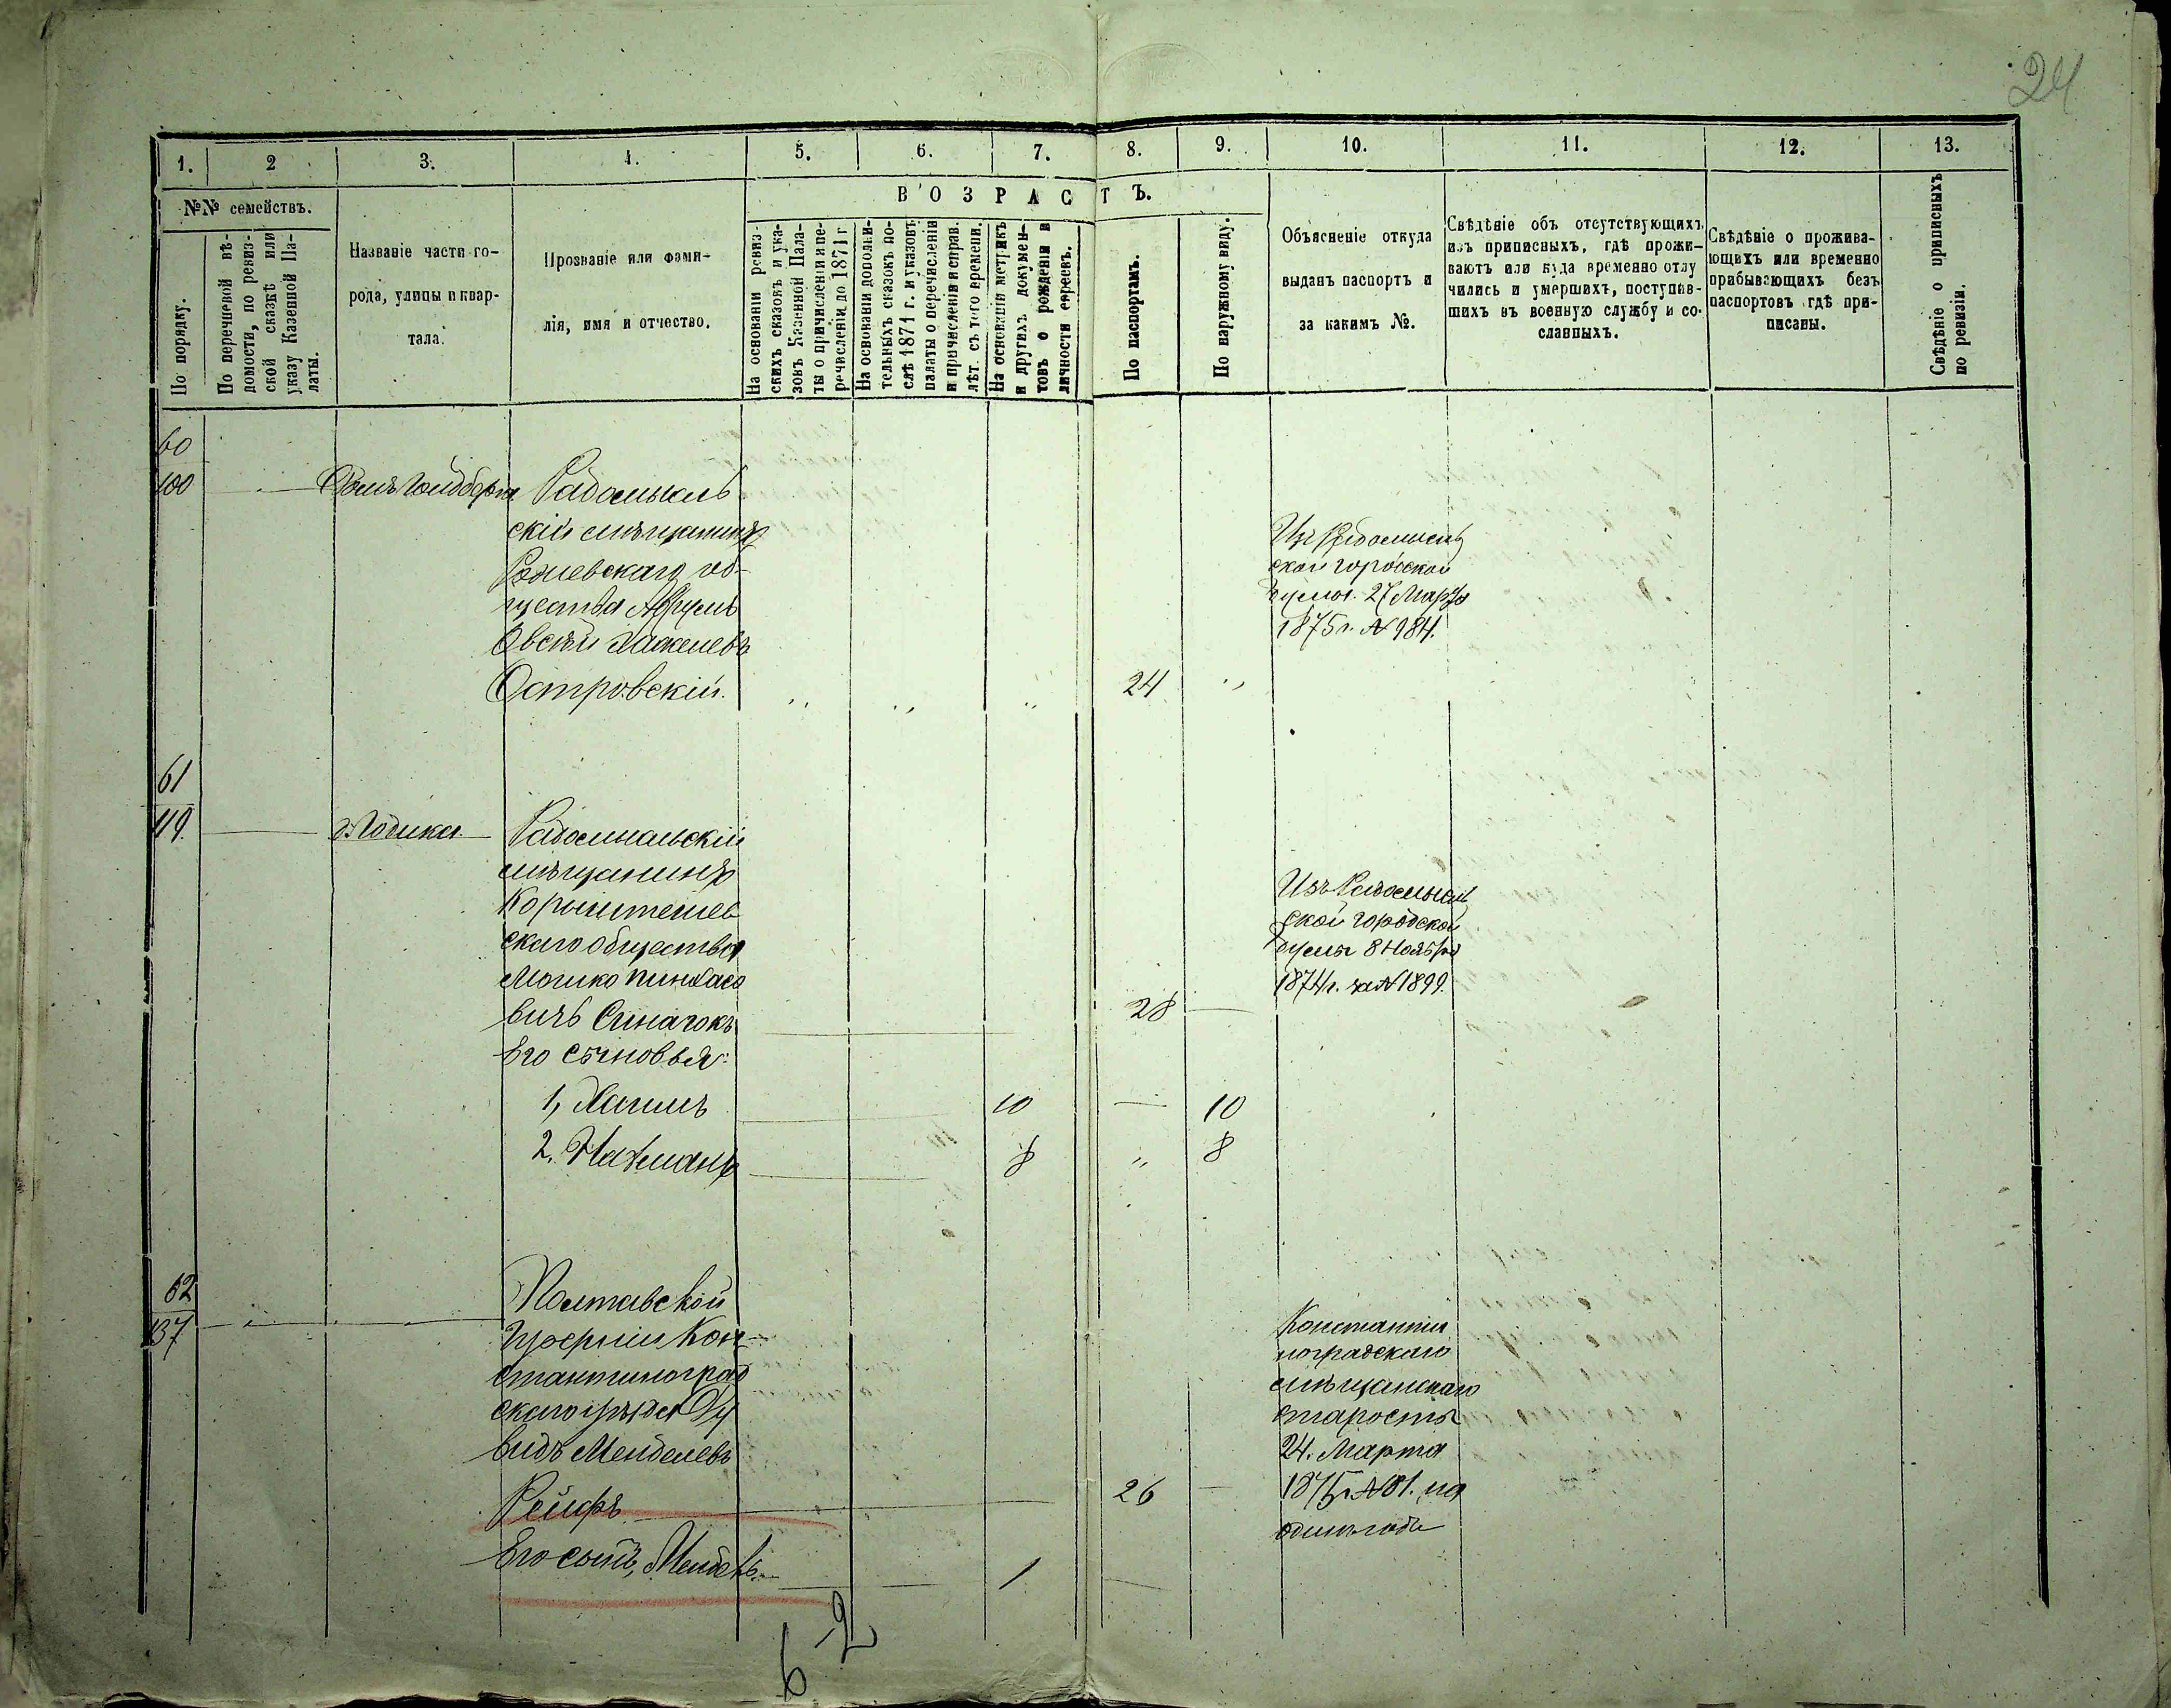 24
1. 2 3. 4. 5. 6. 7. 8. 9. 10. 11. 12. 13.
№№ семействъ.
ВОЗРАСТЪ.
По порядку.
По перечневой вѣ-
домости, по ревиз-
ской сказкѣ или
указу Казенной Па-
латы.
Названіе части го-
рода, улицы и квар-
тала.
Прозваніе или фами-
лія, имя и отчество.
На основаніи ревиз-
скихъ сказокъ и ука-
зовъ Казенной Пала-
ты о причисленіи и пе-
речисленіи до 1871 г
На основаніи дополни-
тельныхъ сказокъ по-
слѣ 1871 г. и указовъ
палаты о перечисленіи
и причисленіи и справ.
лѣт. съ того времени.
На основаніи метрикъ
и другихъ докумен-
товъ о рожденіи и
личности евреевъ.
По паспортамъ.
По наружному виду.
Объясненіе откуда
выданъ паспортъ и
за какимъ №.
Свѣдѣніе объ отсутствующихъ
изъ приписныхъ, гдѣ прожи-
ваютъ или куда временно отлу
чились и умершихъ, поступив-
шихъ въ военную службу и со-
сланныхъ.
Свѣдѣніе о прожива-
ющихъ или временно
прибывающихъ безъ
паспортовъ гдѣ при-
писаны.
Свѣдѣніе о приписныхъ
по ревизіи.
60
100
Домъ Гольдберга
Радомысль
скій мѣщанинъ
об-
щества
Островскій.
24
Изъ Радомысль
ской городской
думы. 27 Марта
1875 г. № 984.
61
119
Родика
Радомысльскій
мѣщанинъ
Коростышев
скаго общества
Мошко Пинхасо
вичъ
28
Его сыновья:
1, Хаимъ 10 — 10
2. Нахманъ 8 „ 8
Изъ Радомысль
ской городской
думы 8 Ноября
1874 г. за № 1899.
62
137
Полтавской
Губерніи Кон-
стантиноград
скаго уѣзда Ду
видъ Менделевъ
Рейфъ
26
Его сынъ, Мендель.
1
Константи
ноградскаго
мѣщанскаго
старосты
24. Марта
1875 г. № 81. на
одинъ годъ
6 2